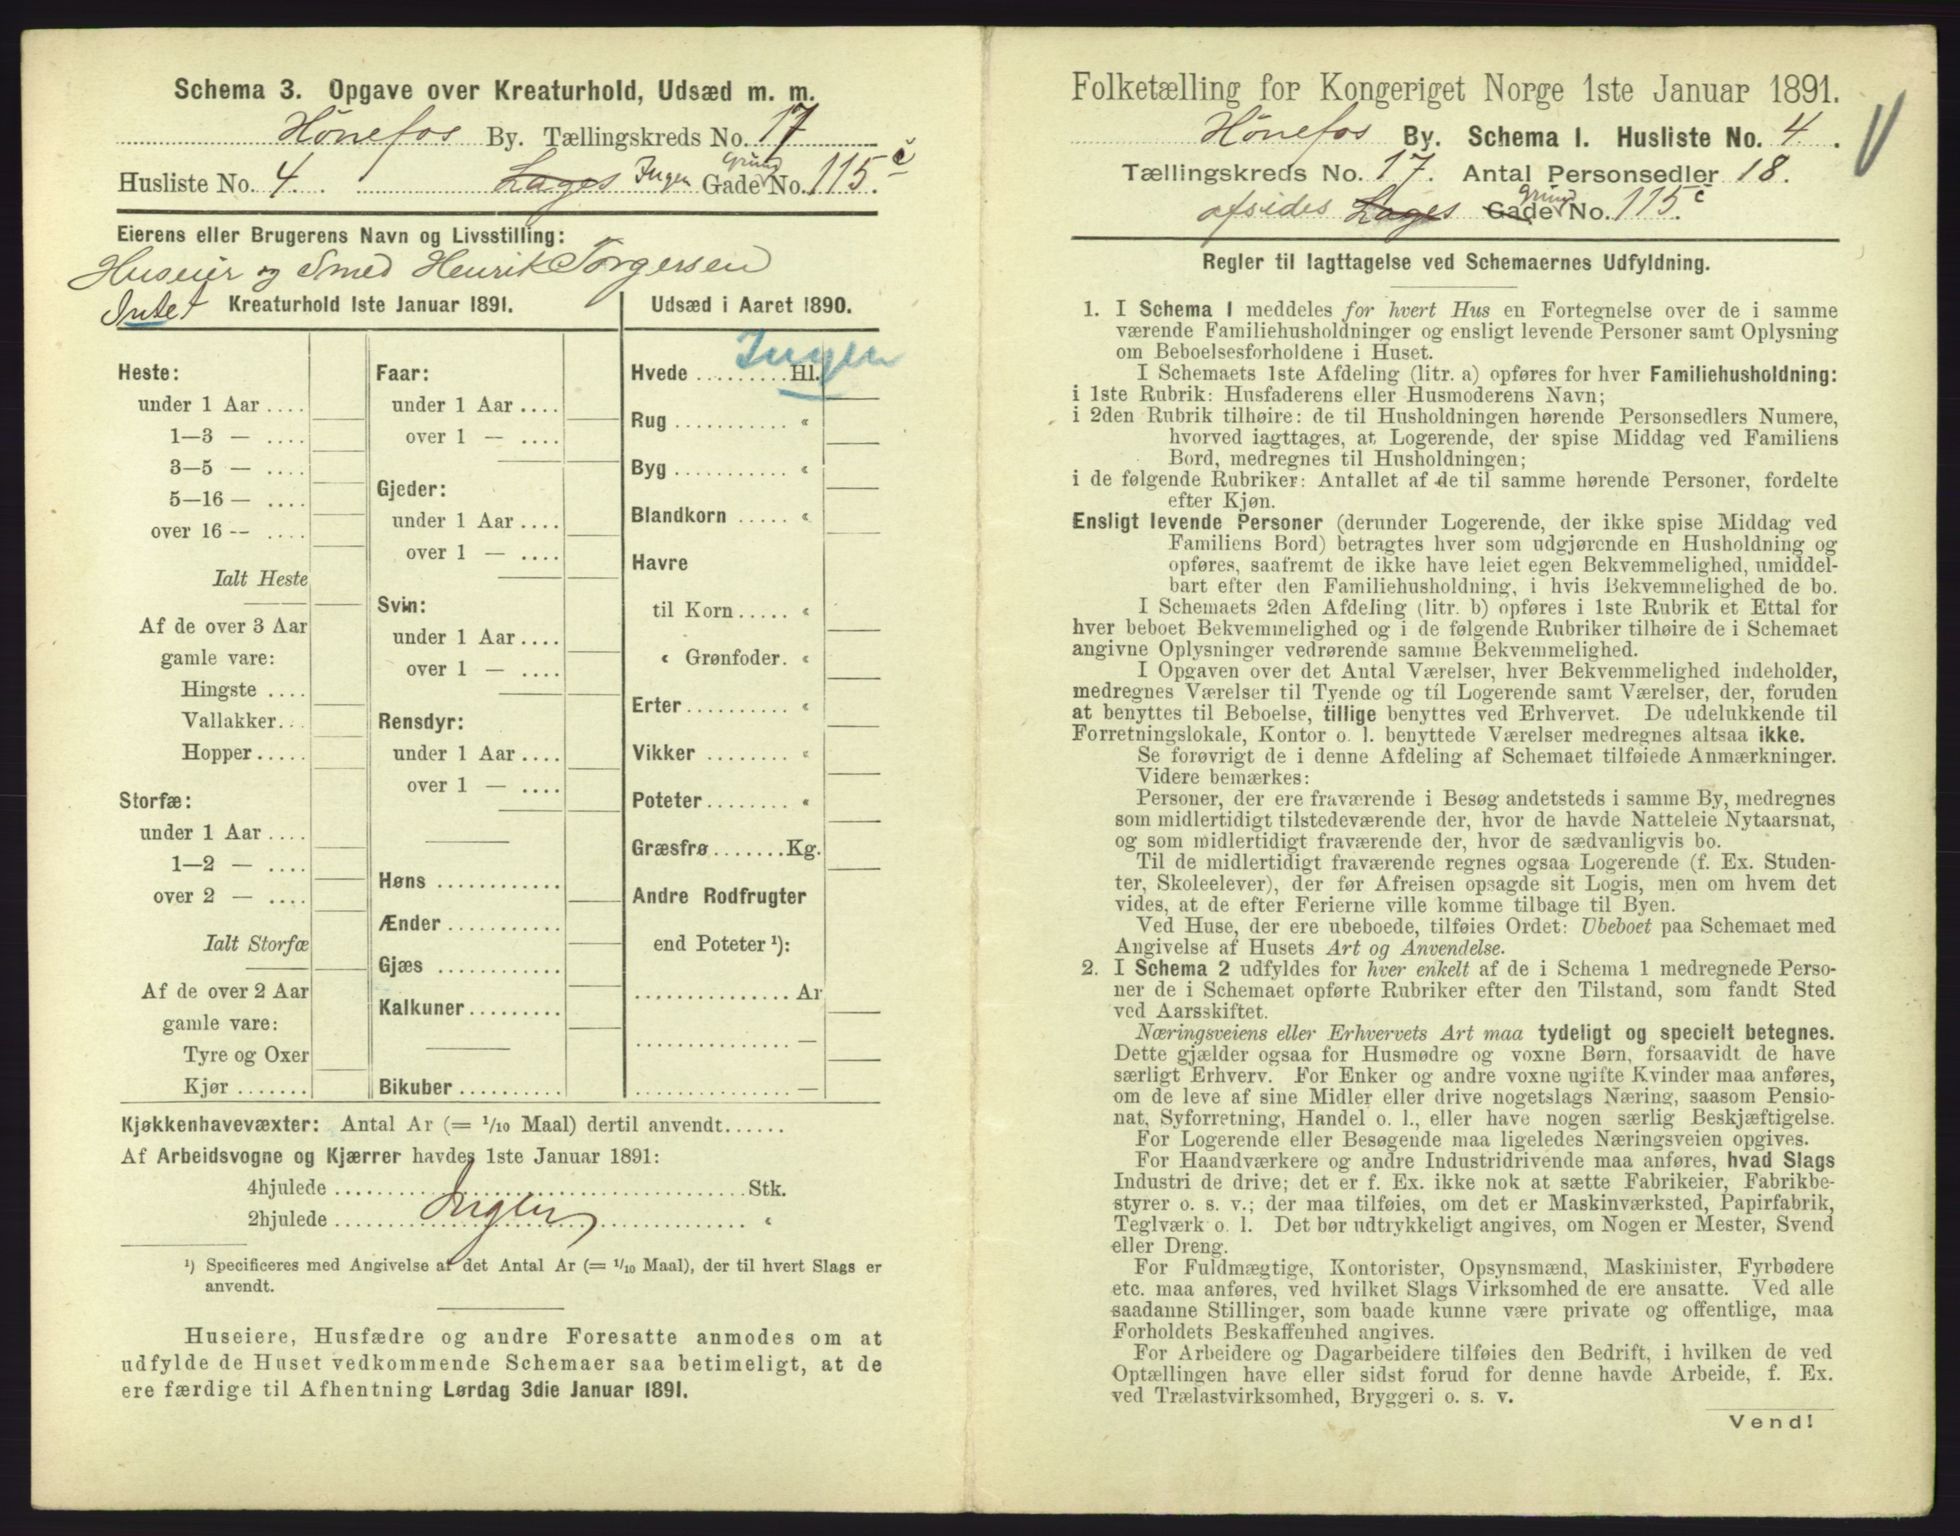 Schema 3. Opgave over Kreaturhold, Udsæd m. m.
Hønefos By. Tællingskreds No. 17
Husliste No. 4. Lages Ingen Gade Grund No. 115c
Eierens eller Brugerens Navn og Livsstilling:
Huseier og Smed Henrik Torgersen
Intet Kreaturhold 1ste Januar 1891.
Heste:
under 1 Aar ....
1—3 — ....
3—5 — ....
5—16 — ....
over 16 — ....
Ialt Heste
Af de over 3 Aar
gamle vare:
Hingste ....
Vallakker...
Hopper.....
Storfæ:
under 1 Aar ....
1—2 — ....
over 2 — ....
Ialt Storfæ
Af de over 2 Aar
gamle vare:
Tyre og Oxer
Kjør .......
Faar:
under 1 Aar ....
over 1 — ....
Gjeder:
under 1 Aar ....
over 1 — ....
Svin:
under 1 Aar ....
over 1 — ....
Rensdyr:
under 1 Aar ....
over 1 — ....
Høns ............
Ænder ...........
Gjæs ............
Kalkuner .........
Bikuber ..........
Udsæd i Aaret 1890.
Ingen
Hvede .........Hl.
Rug ........... «
Byg ........... «
Blandkorn ..... «
Havre
til Korn ..... «
« Grønfoder. «
Erter .......... «
Vikker ........ «
Poteter ........ «
Græsfrø .......Kg.
Andre Rodfrugter
end Poteter ¹):
............... Ar
............... —
............... —
Kjøkkenhavevæxter: Antal Ar (= 1/10 Maal) dertil anvendt......
Af Arbeidsvogne og Kjærrer havdes 1ste Januar 1891:
4hjulede ........................................Stk.
2hjulede ........................................ «
Ingen
¹) Specificeres med Angivelse af det Antal Ar (= 1/10 Maal), der til hvert Slags er
anvendt.
Huseiere, Husfædre og andre Foresatte anmodes om at
udfylde de Huset vedkommende Schemaer saa betimeligt, at de
ere færdige til Afhentning Lørdag 3die Januar 1891.
Folketælling for Kongeriget Norge 1ste Januar 1891.
Hønefos By. Schema 1. Husliste No. 4.
Tællingskreds No. 17. Antal Personsedler 18.
afsides Lages Gade Grund No. 115c
Regler til Iagttagelse ved Schemaernes Udfyldning.
1. I Schema 1 meddeles for hvert Hus en Fortegnelse over de i samme
værende Familiehusholdninger og ensligt levende Personer samt Oplysning
om Beboelsesforholdene i Huset.
I Schemaets 1ste Afdeling (litr. a) opføres for hver Familiehusholdning:
i 1ste Rubrik: Husfaderens eller Husmoderens Navn;
i 2den Rubrik tilhøire: de til Husholdningen hørende Personsedlers Numere,
hvorved iagttages, at Logerende, der spise Middag ved Familiens
Bord, medregnes til Husholdningen;
i de følgende Rubriker: Antallet af de til samme hørende Personer, fordelte
efter Kjøn.
Ensligt levende Personer (derunder Logerende, der ikke spise Middag ved
Familiens Bord) betragtes hver som udgjørende en Husholdning og
opføres, saafremt de ikke have leiet egen Bekvemmelighed, umiddel-
bart efter den Familiehusholdning, i hvis Bekvemmelighed de bo.
I Schemaets 2den Afdeling (litr. b) opføres i 1ste Rubrik et Ettal for
hver beboet Bekvemmelighed og i de følgende Rubriker tilhøire de i Schemaet
angivne Oplysninger vedrørende samme Bekvemmelighed.
I Opgaven over det Antal Værelser, hver Bekvemmelighed indeholder,
medregnes Værelser til Tyende og til Logerende samt Værelser, der, foruden
at benyttes til Beboelse, tillige benyttes ved Erhvervet. De udelukkende til
Forretningslokale, Kontor o. l. benyttede Værelser medregnes altsaa ikke.
Se forøvrigt de i denne Afdeling af Schemaet tilføiede Anmærkninger.
Videre bemærkes:
Personer, der ere fraværende i Besøg andetsteds i samme By, medregnes
som midlertidigt tilstedeværende der, hvor de havde Natteleie Nytaarsnat,
og som midlertidigt fraværende der, hvor de sædvanligvis bo.
Til de midlertidigt fraværende regnes ogsaa Logerende (f. Ex. Studen-
ter, Skoleelever), der før Afreisen opsagde sit Logis, men om hvem det
vides, at de efter Ferierne ville komme tilbage til Byen.
Ved Huse, der ere ubeboede, tilføies Ordet: Ubeboet paa Schemaet med
Angivelse af Husets Art og Anvendelse.
2. I Schema 2 udfyldes for hver enkelt af de i Schema 1 medregnede Perso-
ner de i Schemaet opførte Rubriker efter den Tilstand, som fandt Sted
ved Aarsskiftet.
Næringsveiens eller Erhvervets Art maa tydeligt og specielt betegnes.
Dette gjælder ogsaa for Husmødre og voxne Børn, forsaavidt de have
særligt Erhverv. For Enker og andre voxne ugifte Kvinder maa anføres,
om de leve af sine Midler eller drive nogetslags Næring, saasom Pensio-
nat, Syforretning, Handel o. l., eller have nogen særlig Beskjæftigelse.
For Logerende eller Besøgende maa ligeledes Næringsveien opgives.
For Haandværkere og andre Industridrivende maa anføres, hvad Slags
Industri de drive; det er f. Ex. ikke nok at sætte Fabrikeier, Fabrikbe-
styrer o. s. v.; der maa tilføies, om det er Maskinværksted, Papirfabrik,
Teglværk o. l. Det bør udtrykkeligt angives, om Nogen er Mester, Svend
eller Dreng.
For Fuldmægtige, Kontorister, Opsynsmænd, Maskinister, Fyrbødere
etc. maa anføres, ved hvilket Slags Virksomhed de ere ansatte. Ved alle
saadanne Stillinger, som baade kunne være private og offentlige, maa
Forholdets Beskaffenhed angives.
For Arbeidere og Dagarbeidere tilføies den Bedrift, i hvilken de ved
Optællingen have eller sidst forud for denne havde Arbeide, f. Ex.
ved Trælastvirksomhed, Bryggeri o. s. v.
Vend!